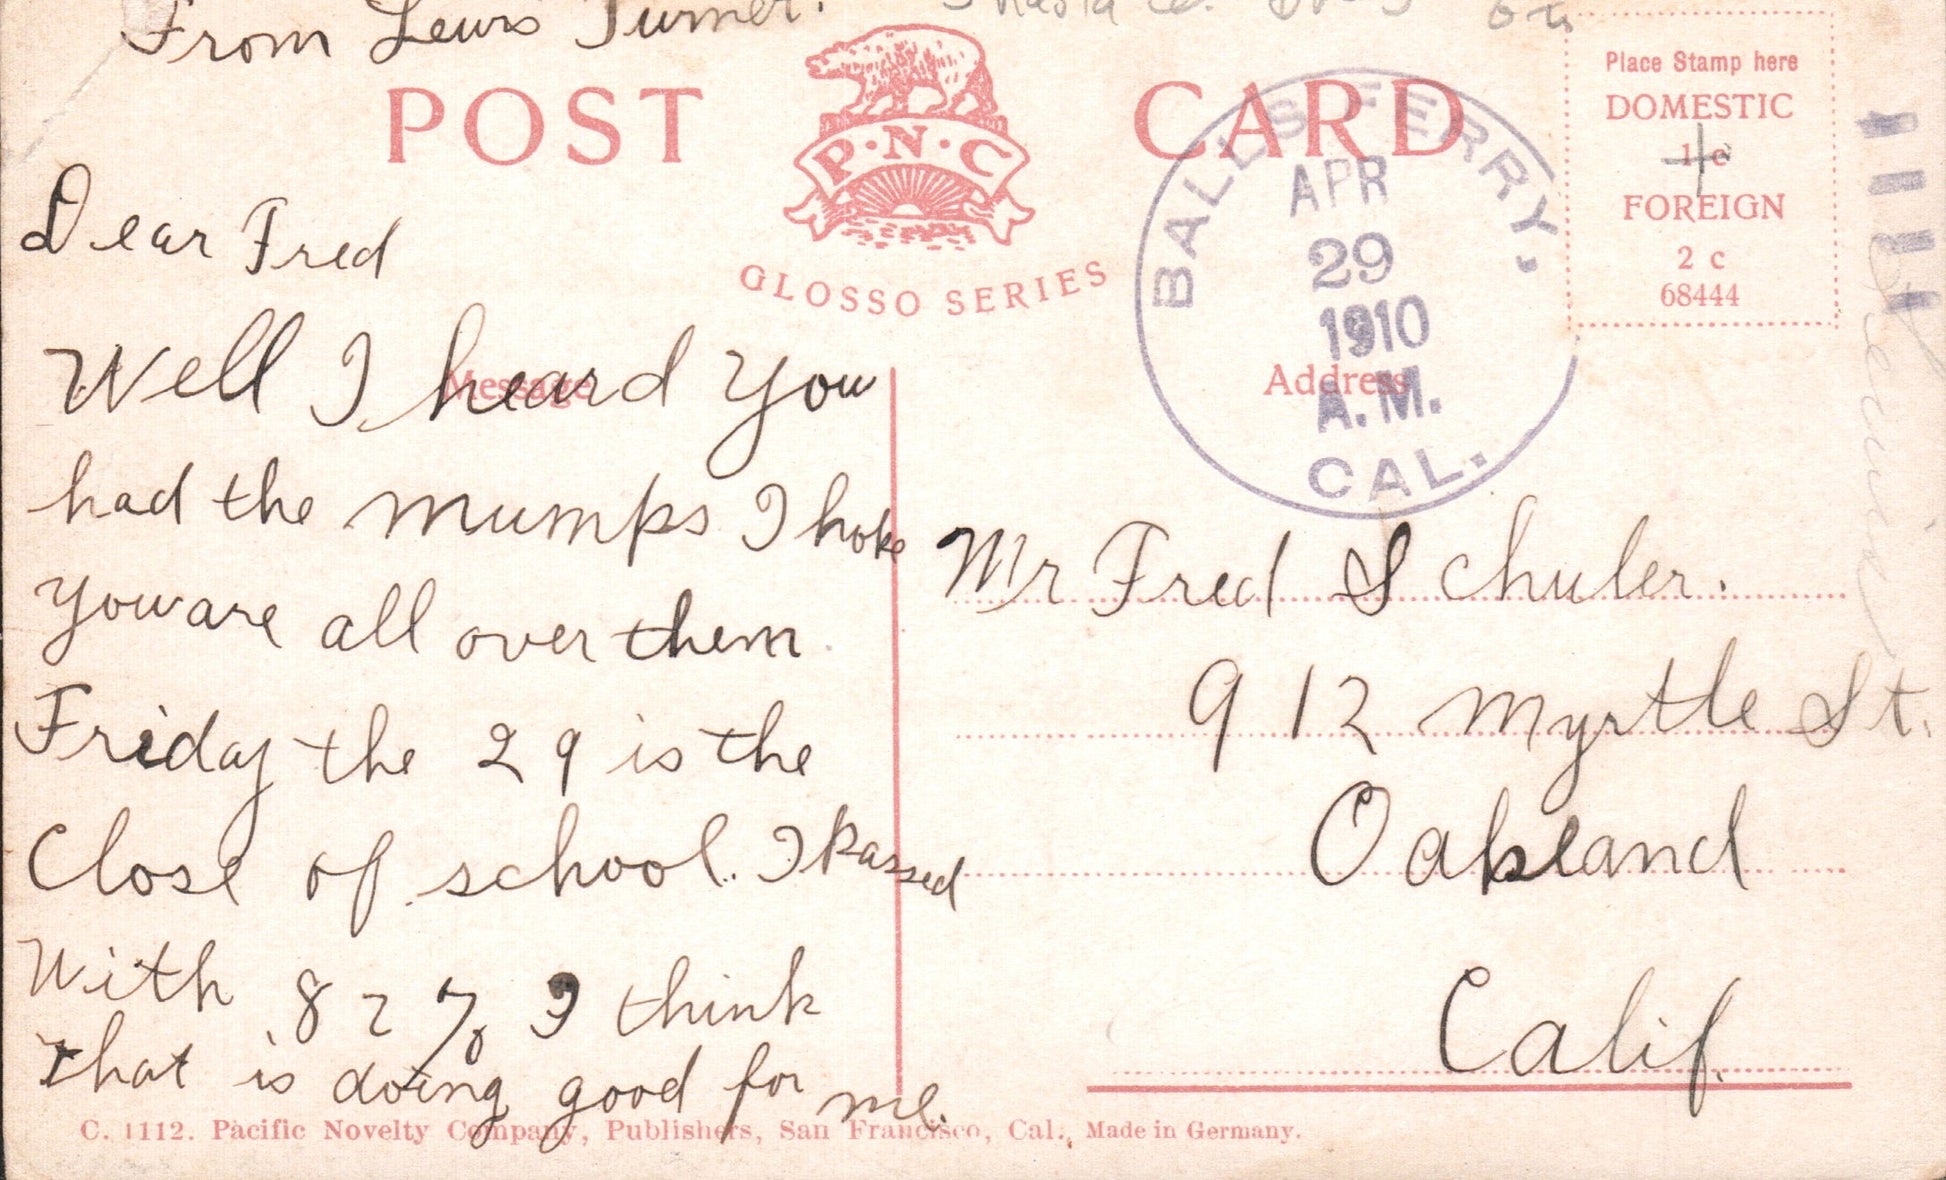 From Lewis Turner.
POST CARD
P·N·C
GLOSSO SERIES
Place Stamp here
DOMESTIC
1 c
FOREIGN
2 c
68444
BALLS FERRY,
APR
29
1910
A.M.
CAL.
Message
Address
Dear Fred
Well I heard you
had the mumps I hope
you are all over them
Friday the 29 is the
Close of school. I passed
With 82 % I think
that is doing good for me.
Mr Fred Schuler.
912 Myrtle St.
Oakland
Calif.
C. 1112. Pacific Novelty Company, Publishers, San Francisco, Cal., Made in Germany.